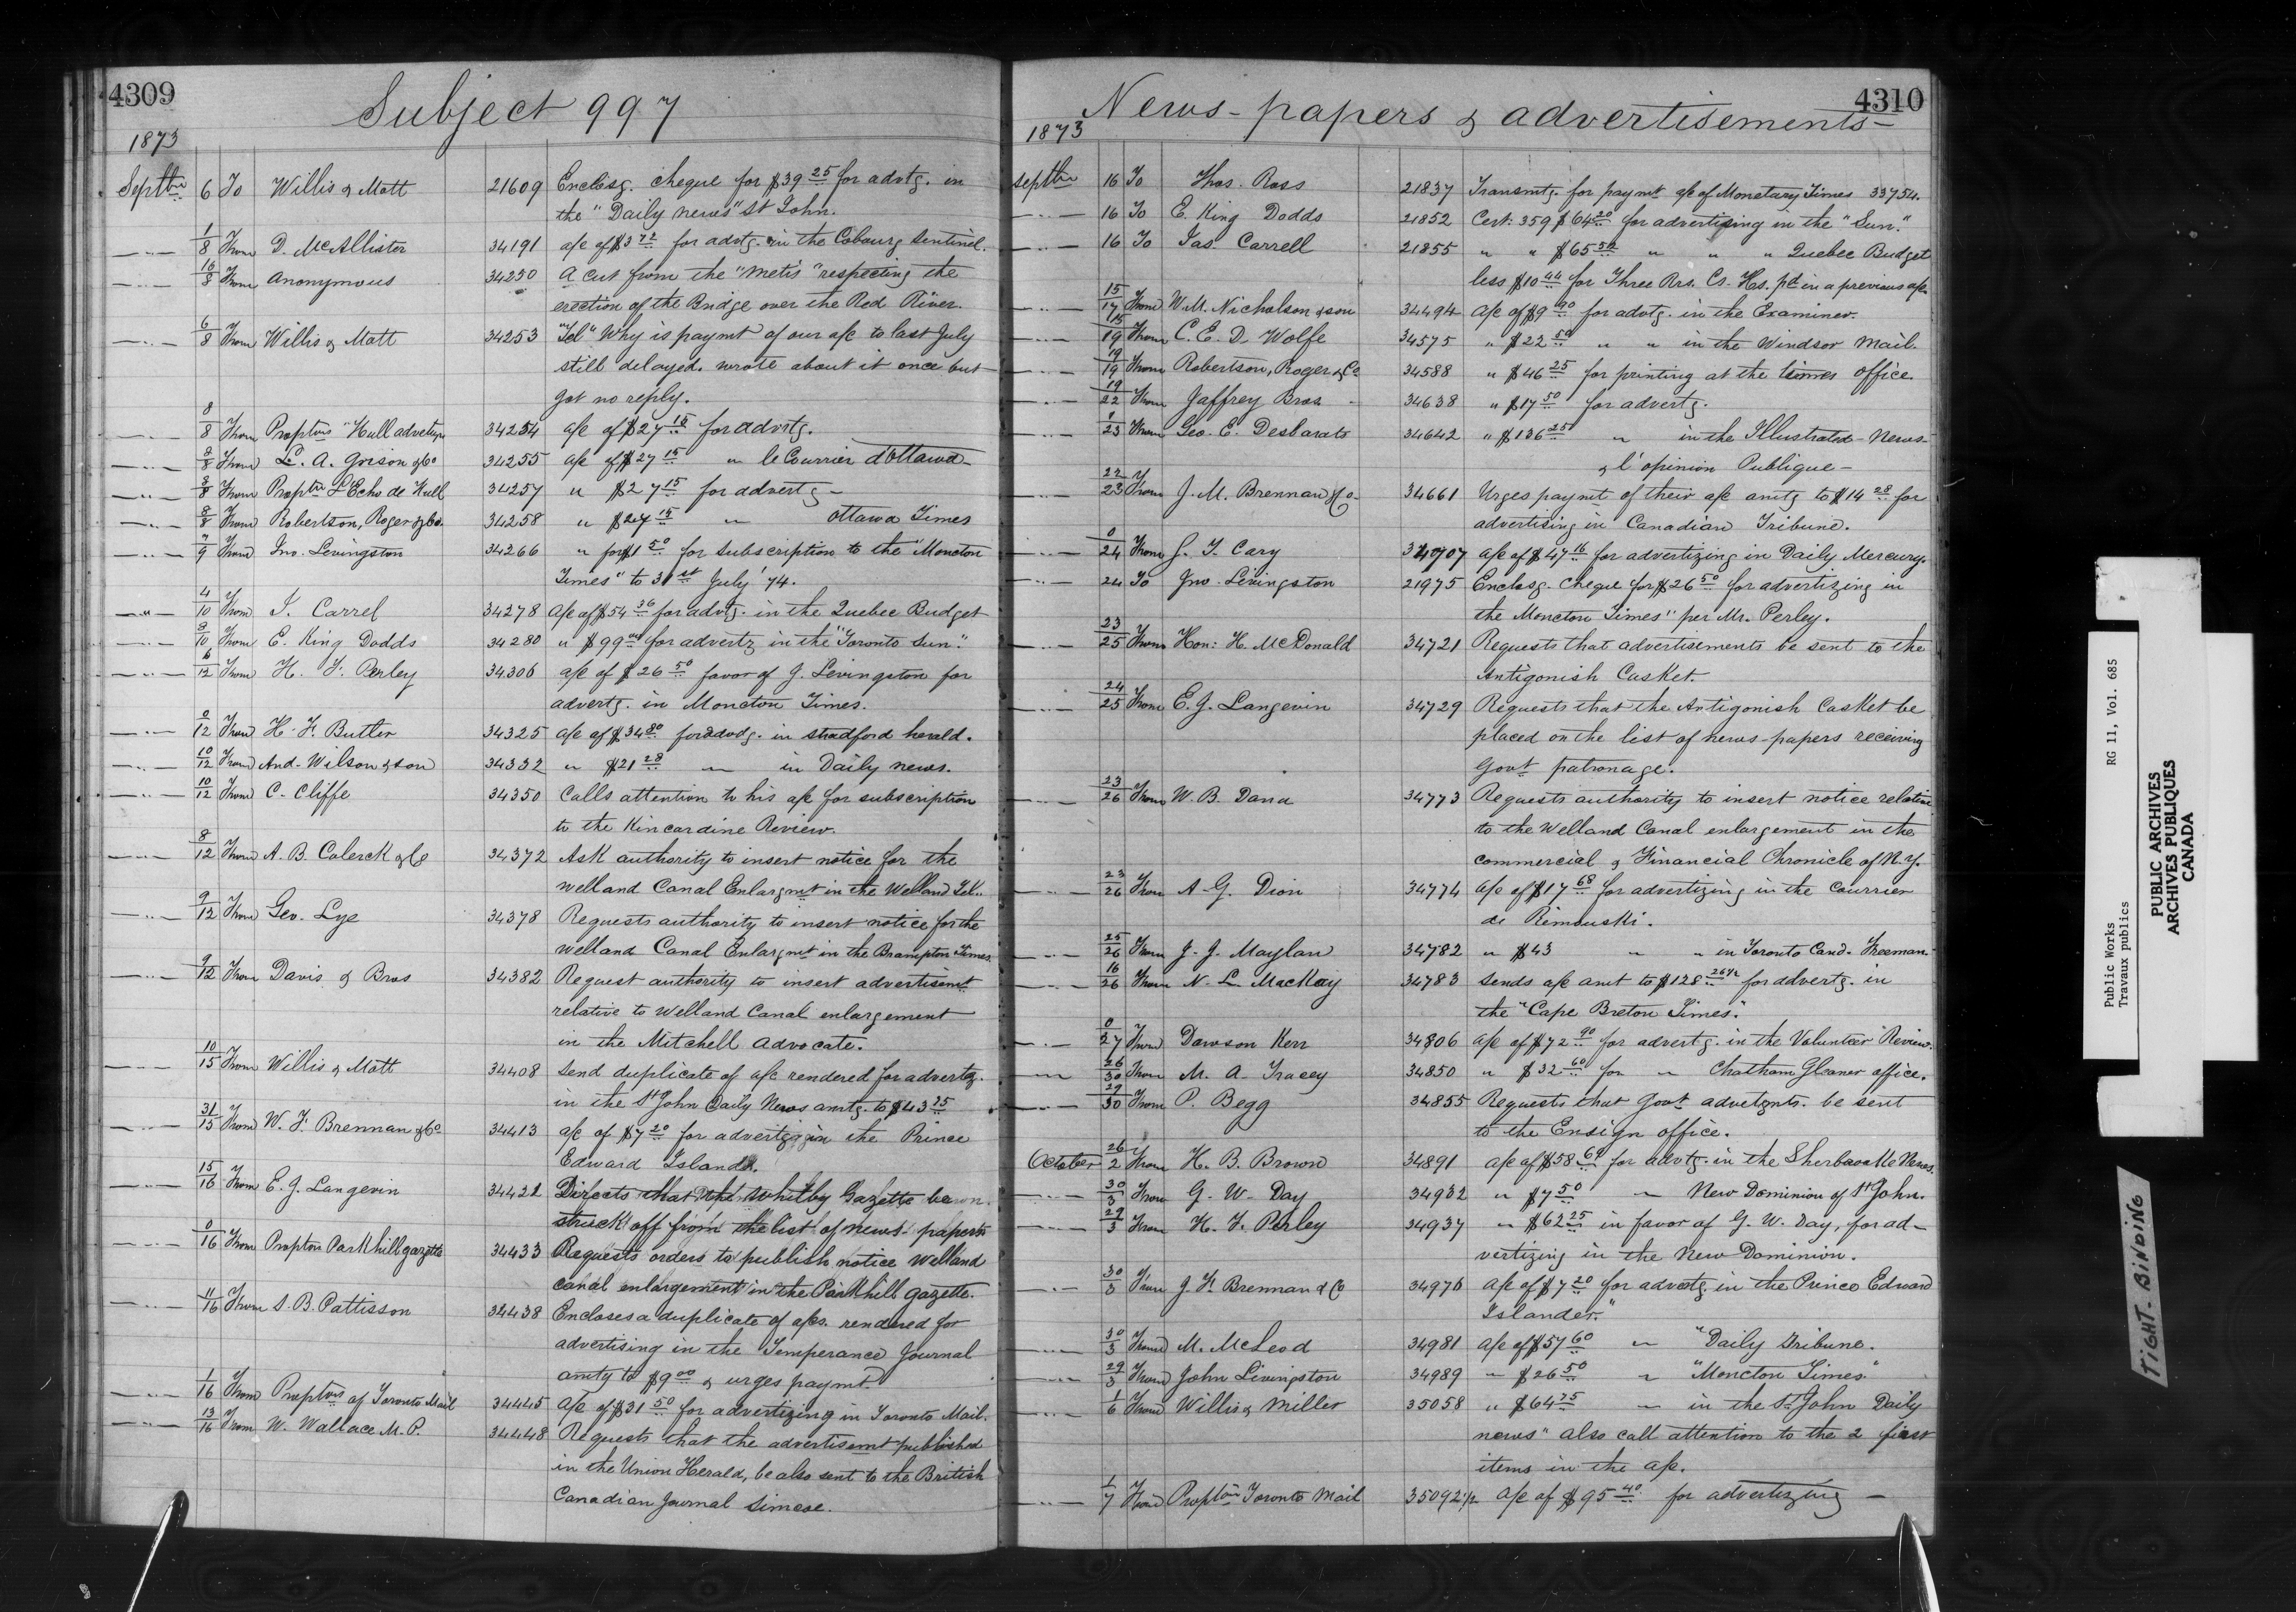 4309
Subject 997
1873
Septbr 6 To Willis & Mott 21609 Enclosg. cheque for $39 25 for advtg. in
the "Daily news" St John.
1/8 From D. McAllister 34191 a/c of $3 72 for advtg. in the Cobourg Sentinel.
/8 From Anonymous 34250 A cut from the "Metis" respecting the
erection of the Bridge over the Red River.
6/8 From Willis & Mott 34253 "Tel" Why is paymt of our a/c to last July
still delayed. wrote about it once but
got no reply.
8/8 From Proptors "Hull 34254 a/c of $27 15 for advrtg.
8/8 From L. A. & Co 34255 a/c of $27 15 " le Courrier d'Ottawa
8/8 From Proptr L'Echo de Hull 34257 " $27 15 for advertg
8/8 From Robertson, Roger & Co. 34258 " $27 15 " Ottawa Times
7/9 From Jno. Levingston 34266 " for $1 50 for subscription to the "Moncton
Times" to 31st July '74.
4/10 From J. Carrel 34278 a/c of $54 36 for advtg. in the Quebec Budget
8/10 From E. King Dodds 34280 " $99 00 for advertg in the "Toronto Sun."
6/12 From H. F. Perley 34306 a/c of $26 50 favor of J. Levingston for
advertg. in Moncton Times.
0/12 From H. F. Butler 34325 a/c of $34 80 for advtg. in stradford herald.
10/12 From And. Wilson & son 34332 " $21 28 " in Daily news.
10/12 From C. Cliffe 34350 Calls attention to his a/c for subscription
to the Kincardine Review.
8/12 From A. B. Colerck & Co 34372 Ask authority to insert notice for the
Welland Canal Enlargmt in the Welland Tel.
9/12 From Geo. Lye 34378 Requests authority to insert notice for the
Welland Canal Enlargmt in the Brampton Times.
9/12 From Davis & Bros 34382 Request authority to insert advertisemt
relative to Welland Canal enlargement
in the Mitchell Advocate.
10/15 From Willis & Mott 34408 Send duplicate of a/c rendered for advertg.
in the St John Daily News amtg. to $43 25
31/15 From W. F. Brennan & Co 34413 a/c of $7 20 for advertzg in the Prince
Edward Islander.
15/16 From E. J. Langevin 34421 Directs that the Whitby Gazette be
struck off from the list of news-papers
0/16 From Proptors Parkhill gazette 34433 Requests orders to publish notice Welland
canal enlargement in the Parkhill gazette.
11/16 From S. B. Pattisson 34438 Encloses a duplicate of a/cs. rendered for
advertising in the Temperance Journal
amtg to $9 00 & urges paymt.
1/16 From Proptors of Toronto Mail 34445 a/c of $31 50 for advertizing in Toronto Mail.
13/16 From W. Wallace M. P. 34448 Requests that the advertisemt published
in the Union Herald, be also sent to the British
Canadian Journal Simcoe.
4310
News-papers & advertisements
1873
Septbr 16 To Thos. Ross 21837 Transmtg. for paymt a/c of Monetary Times 33754.
16 To E. King Dodds 21852 Cert: 359 $64 20 for advertising in the "Sun."
16 To Jas. Carrell 21855 " " $65 52 " " " Quebec Budget
less $10 44 for Three Rrs. Cs. Hs. pd in a previous a/c.
15/17 From W. M. Nicholson & son 34494 a/c of $9 90 for advtg. in the Examiner.
15/19 From C. E. D. Wolfe 34575 " $22 50 " " in the Windsor Mail.
19/19 From Robertson, Roger & Co 34588 " $46 25 for printing at the times office
19/22 From Jaffrey Bros. 34638 " $17 50 for advertg.
/23 From Geo. E. Desbarats 34642 " $136 25 " in the Illustrated News
& l'opinion Publique
22/23 From J. M. Brennan & Co 34661 Urges paymt of their a/c amtg to $14 28 for
advertising in Canadian Tribune.
0/24 From G. T. Cary 34707 a/c of $47 16 for advertizing in Daily Mercury.
24 To Jno. Livingston 21975 Enclosg. cheque for $26 50 for advertizing in
the Moncton Times" per Mr. Perley.
23/25 From Hon: H. McDonald 34721 Requests that advertisements be sent to the
Antigonish Casket.
24/25 From E. J. Langevin 34729 Requests that the Antigonish Casket be
placed on the list of news-papers receiving
Govt patronage.
23/26 From W. B. Dana 34773 Requests authority to insert notice relative
to the Welland Canal enlargement in the
commercial & Financial Chronicle of N.Y.
23/26 From A. G. Dion 34774 a/c of $17 68 for advertizing in the Courrier
de Rimouski.
25/26 From J. J. Maylan 34782 " $43 " " in Toronto Cand. Freeman.
16/26 From N. L. MacKay 34783 sends a/c amt to $128 26½ for advertg. in
the "Cape Breton Times."
0/27 From Dawson Kerr 34806 a/c of $72 90 for advertg. in the Volunteer Review.
26/30 From M. A. Tracey 34850 " $32 60 for " Chatham Gleaner office.
29/30 From P. Begg 34855 Requests that Govt advetgnts. be sent
to the Ensign office.
October 26/2 From H. B. Brown 34891 a/c of $58 64 for advtg. in the Sherbrooke News.
30/3 From G. W. Day 34932 " $7 50 " New Dominion of St John.
29/3 From H. F. Perley 34937 " $62 25 in favor of G. W. Day, for ad-
vertizing in the New Dominion.
30/3 From J. F. Brennan & Co 34976 a/c of $7 20 for advertg. in the Prince Edward
Islander."
30/3 From M. McLeod 34981 a/c of $57 60 " "Daily Tribune.
29/3 From John Livingston 34989 " $26 50 " "Moncton Times."
1/6 From Willis & Miller 35058 " $64 75 " in the St John Daily
news" also call attention to the 2 first
items in the a/c.
1/7 From Proptors Toronto Mail 35092½ a/c of $95 40 for advertizing
Public Works RG 11, Vol. 685
Travaux publics
PUBLIC ARCHIVES
ARCHIVES PUBLIQUES
CANADA
TIGHT BINDING